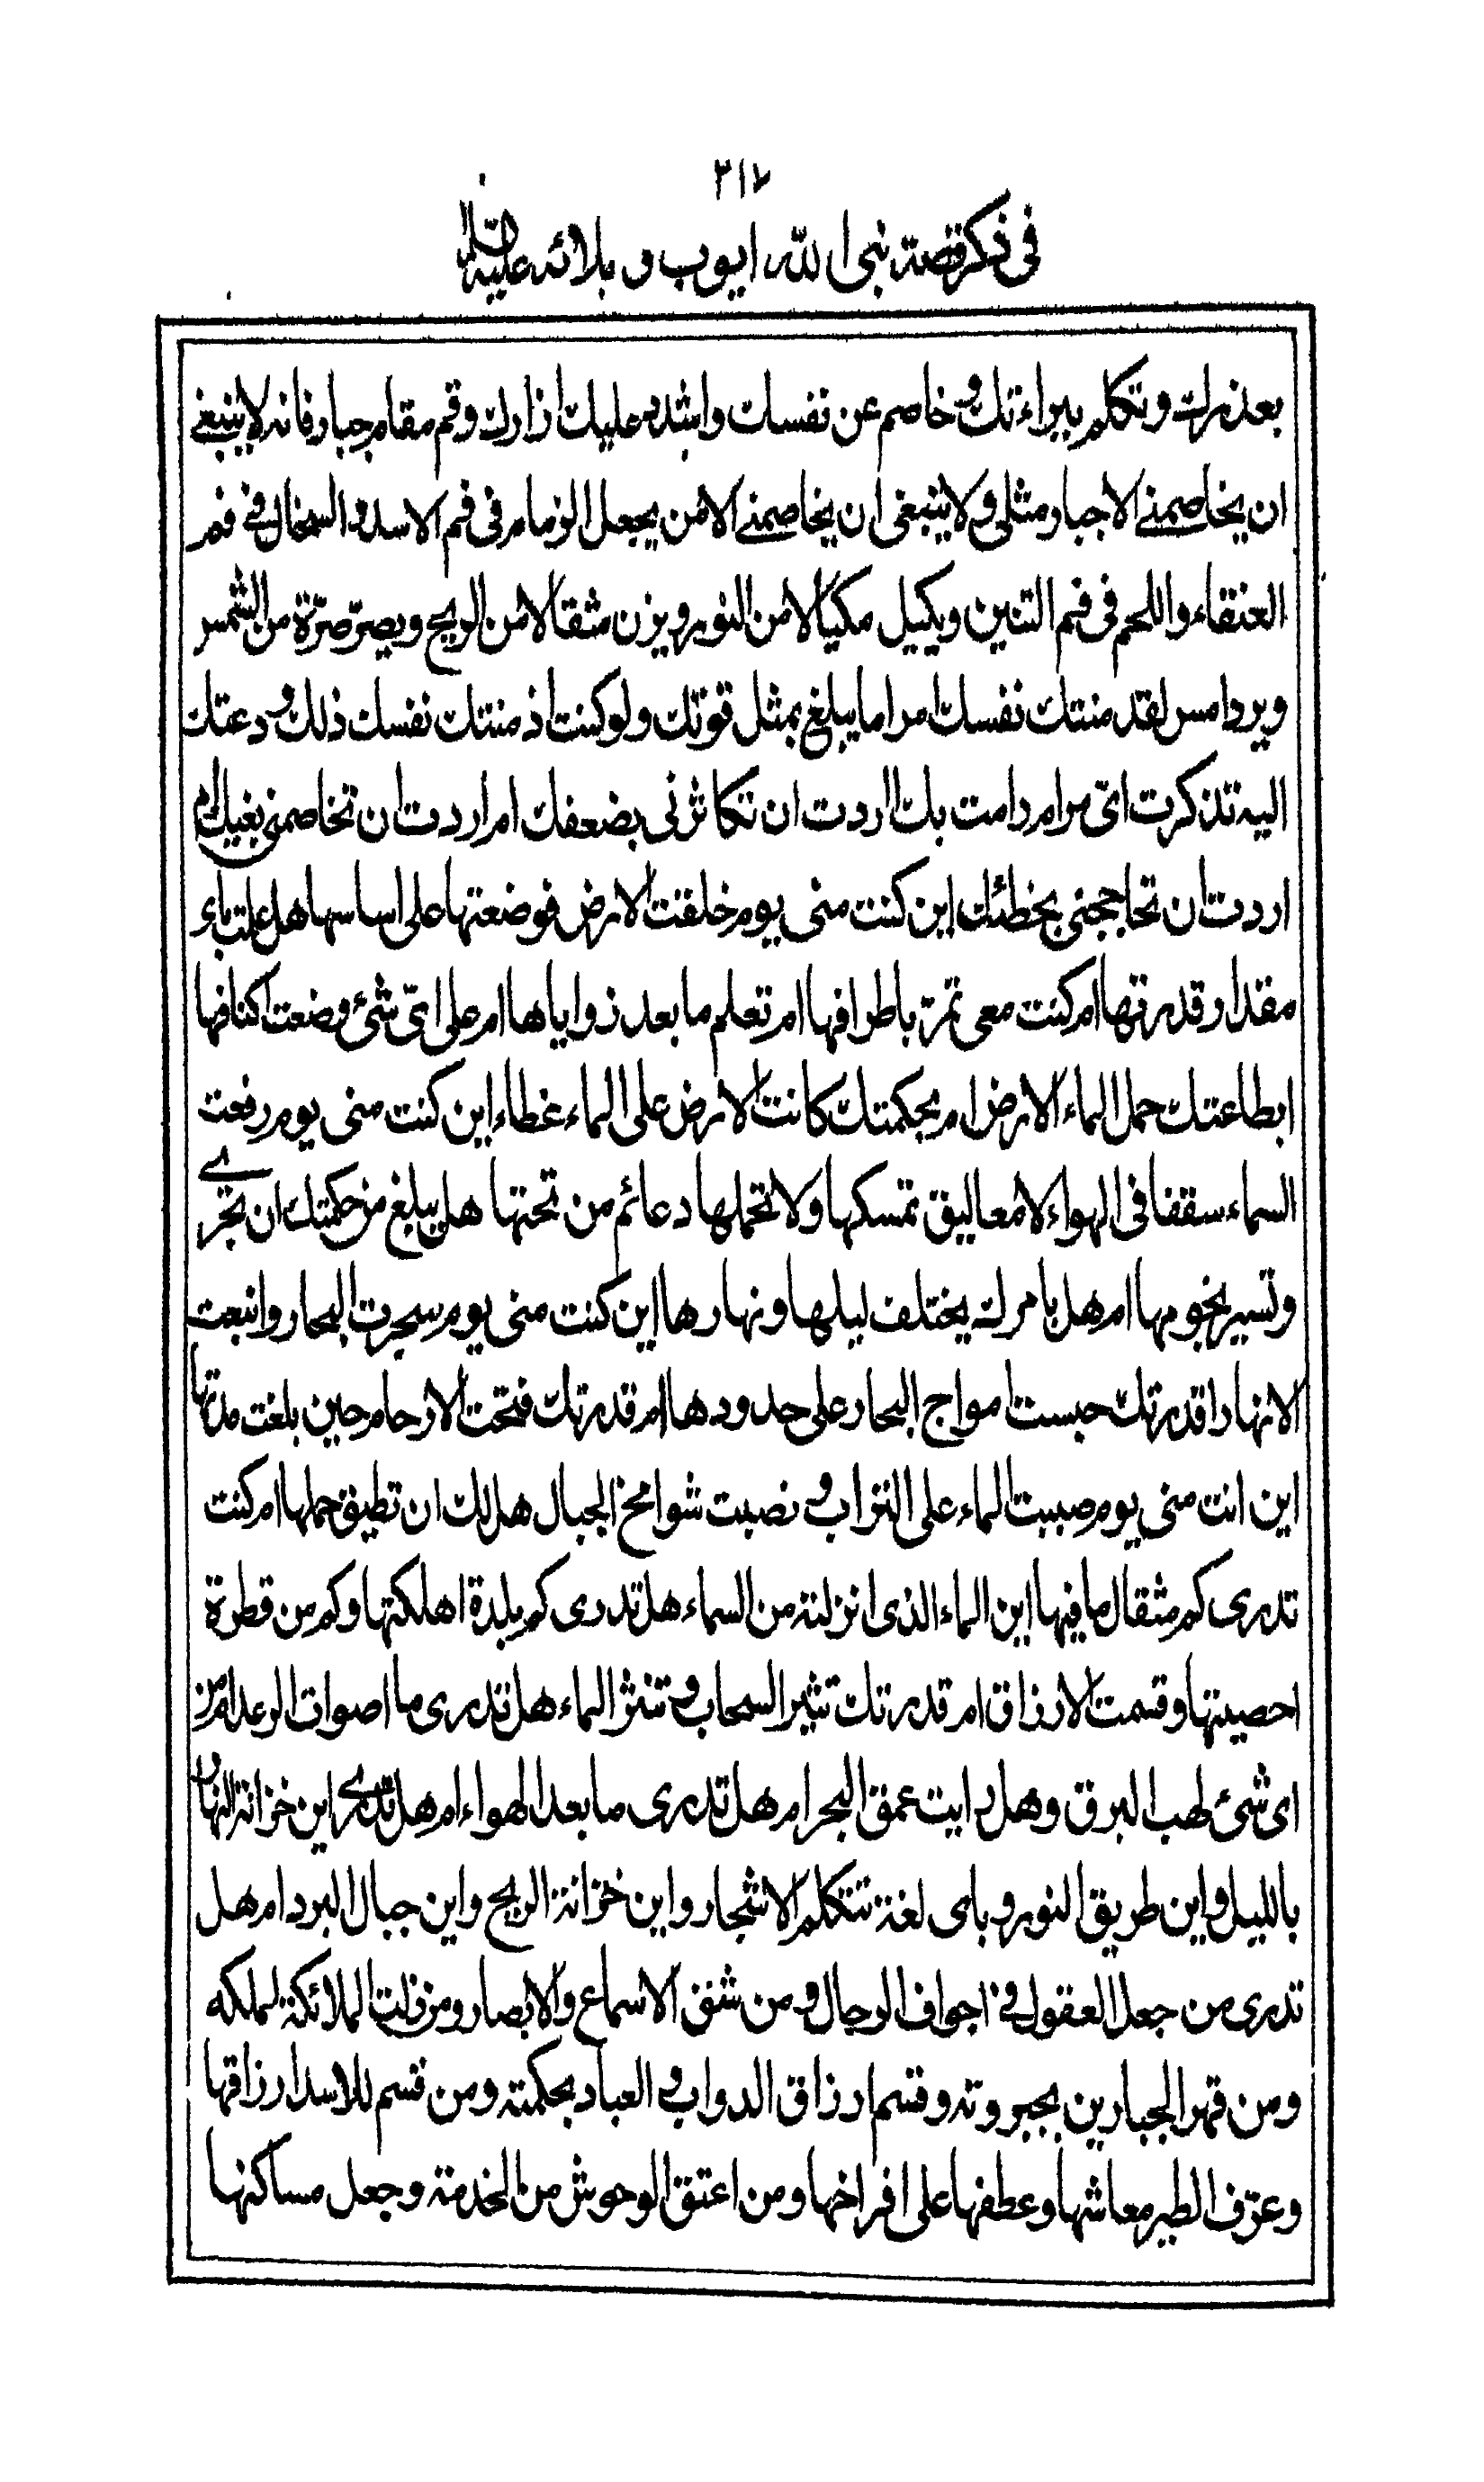 ٣١٧
في ذكر قصة نبي الله ايوب وبلائه عليه السلام
بعذرك وتكلم ببراءتك وخاصم عن نفسك واشدد عليك ازارك وقم مقام جبار فانه لا ينبغي
ان يخاصمني الا جبار مثلي ولا ينبغي ان يخاصمني الا من يجعل الزمام في فم الاسد والسخال في فم
العنقاء واللحم في فم التنين ويكيل مكيالا من النور ويزن مثقالا من الريح ويصرّ صرّة من الشمس
ويرد امس لقد منتك نفسك امرا ما يبلغ بمثل قوتك ولو كنت اذ منتك نفسك ذلك ودعتك
اليه تذكرت اىّ مرام رامت بك اردت ان تكاثرني بضعفك ام اردت ان تخاصمني بغيك ام
اردت ان تحاججني بخطئك اين كنت مني يوم خلقت الارض فوضعتها على اساسها هل علمت باي
مقدار قدرتها ام كنت معي تمرّ باطرافها ام تعلم ما بعد زواياها ام على اىّ شئ وضعت اكنافها
ابطاعتك حمل الماء الارض ام بحكمتك كانت الارض على الماء غطاء اين كنت مني يوم رفعت
السماء سقفا في الهواء لا معاليق تمسكها ولا تحملها دعائم من تحتها هل يبلغ من حكمتك ان تجري
وتسير نجومها ام هل بامرك يختلف ليلها ونهارها اين كنت مني يوم سجرت البحار وانبعت
الانهار اقدرتك حبست امواج البحار على حدودها ام قدرتك فتحت الارحام حين بلغت مدتها
اين انت مني يوم صببت الماء على التراب ونصبت شوامخ الجبال هل لك ان تطيق حملها ام كنت
تدرى كم مثقال ما فيها اين الماء الذى انزلته من السماء هل تدرى كم بلدة اهلكتها وكم من قطرة
احصيتها وقسمت الارزاق ام قدرتك تثير السحاب وتنثر الماء هل تدرى ما اصوات الرعد ام من
اى شئ لهب البرق وهل رايت عمق البحر ام هل تدرى ما بعد الهواء ام هل تدرى اين خزانة النهار
بالليل واين طريق النور وباى لغة تتكلم الاشجار واين خزانة الريح واين جبال البرد ام هل
تدرى من جعل العقول في اجواف الرجال ومن شقق الاسماع والابصار ومن ذلت الملائكة لملكه
ومن قهر الجبارين بجبروته وقسم ارزاق الدواب والعباد بحكمته ومن قسم للاسد ارزاقها
وعرّف الطير معاشها وعطفها على افراخها ومن اعتق الوحوش من الخدمة وجعل مساكنها